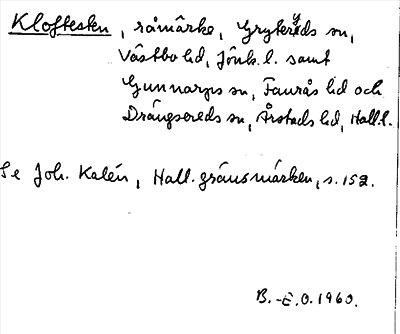 Kloftesten, råmärke, Gryteryds sn,
Västbo hd, Jönk. l. samt
Gunnarps sn, Faurås hd och
Drängsereds sn, Årstads hd, Hall. l.
Se Joh. Kalén, Hall. gränsmärken, s. 152.
B.-E.O. 1960.